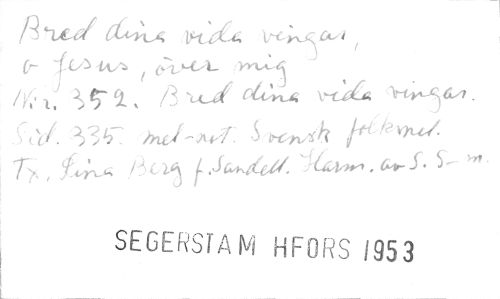 Bred dina vida vingar,
o Jesus, över mig
Nr. 352. Bred dina vida vingar.
Sid. 335. mel-not. Svensk folkmel.
Tx. Lina Berg f. Sandell. Harm. av S. S-m.
SEGERSTAM HFORS 1953